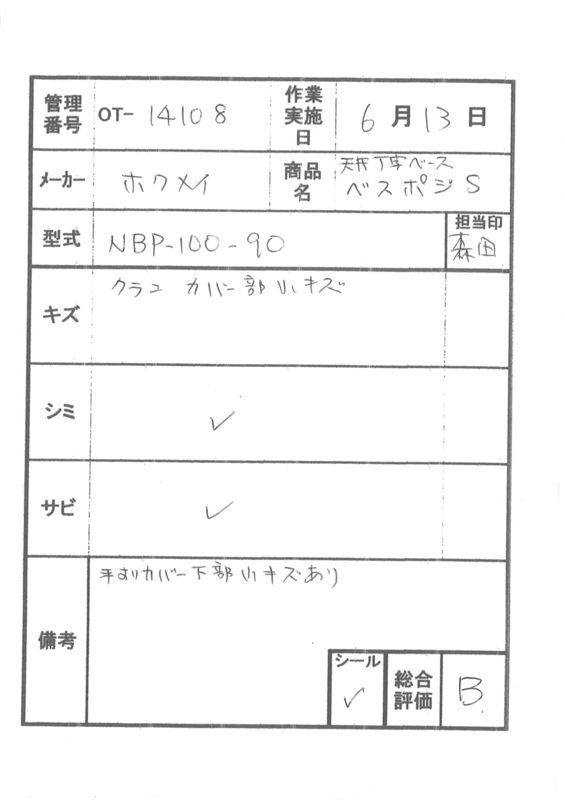 管理番号 OT- 14108 作業実施日 6月13日
メーカー ホクメイ 商品名 天秤丁字ベース
ベスポジS
型式 NBP-100-90 担当印 森田
キズ クラユ カバー部 小キズ
シミ ✓
サビ ✓
備考 手すりカバー下部小キズあり
シール ✓ 総合評価 B